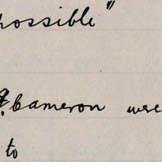 possible"
Cameron wre
to